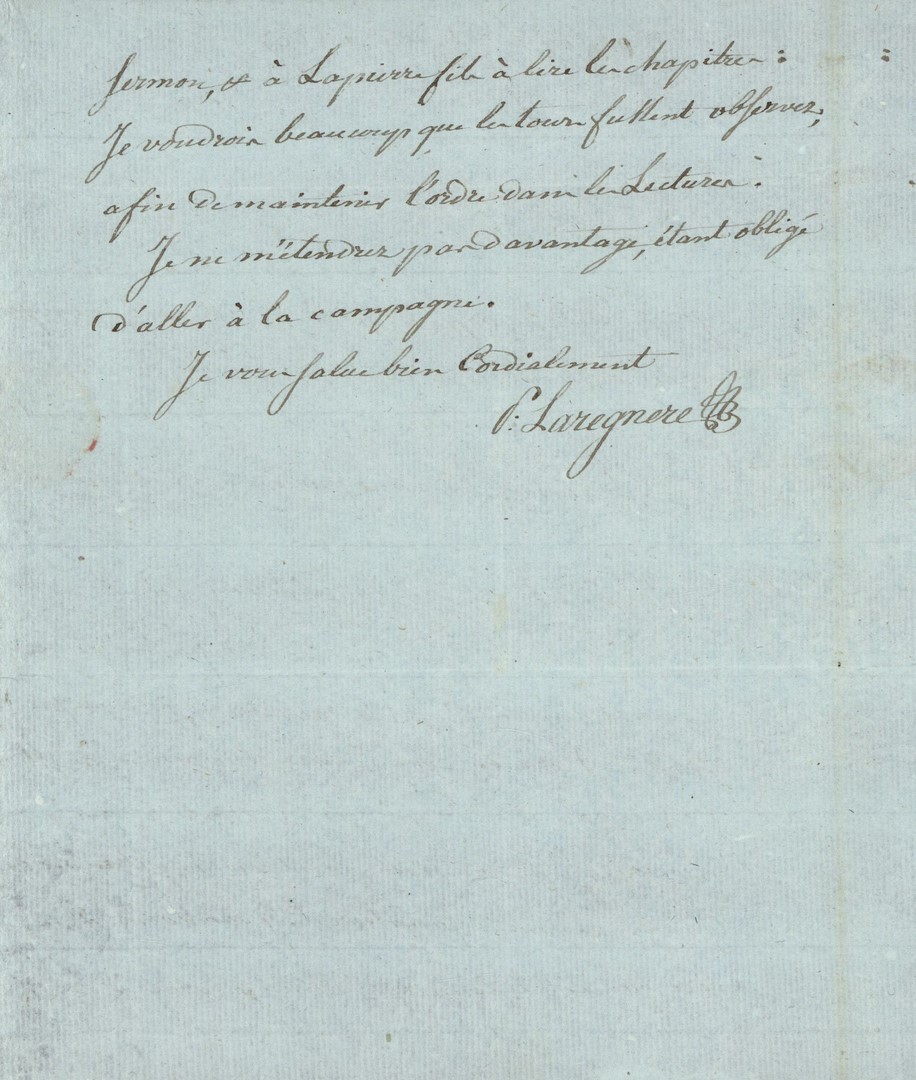 sermon, & à Lapierre fils à lire les chapitres :
Je voudrois beaucoup que les tours fussent observez,
afin de maintenir l'ordre dans les Lectures.
Je ne m'étendrez pas d'avantage, étant obligé
d'aller à la campagne.
Je vous salue bien Cordialement
P: Laregnere